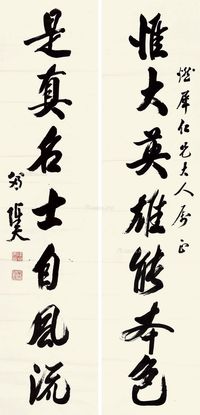 惟大英雄能本色
仁兄大人属正
是真名士自風流